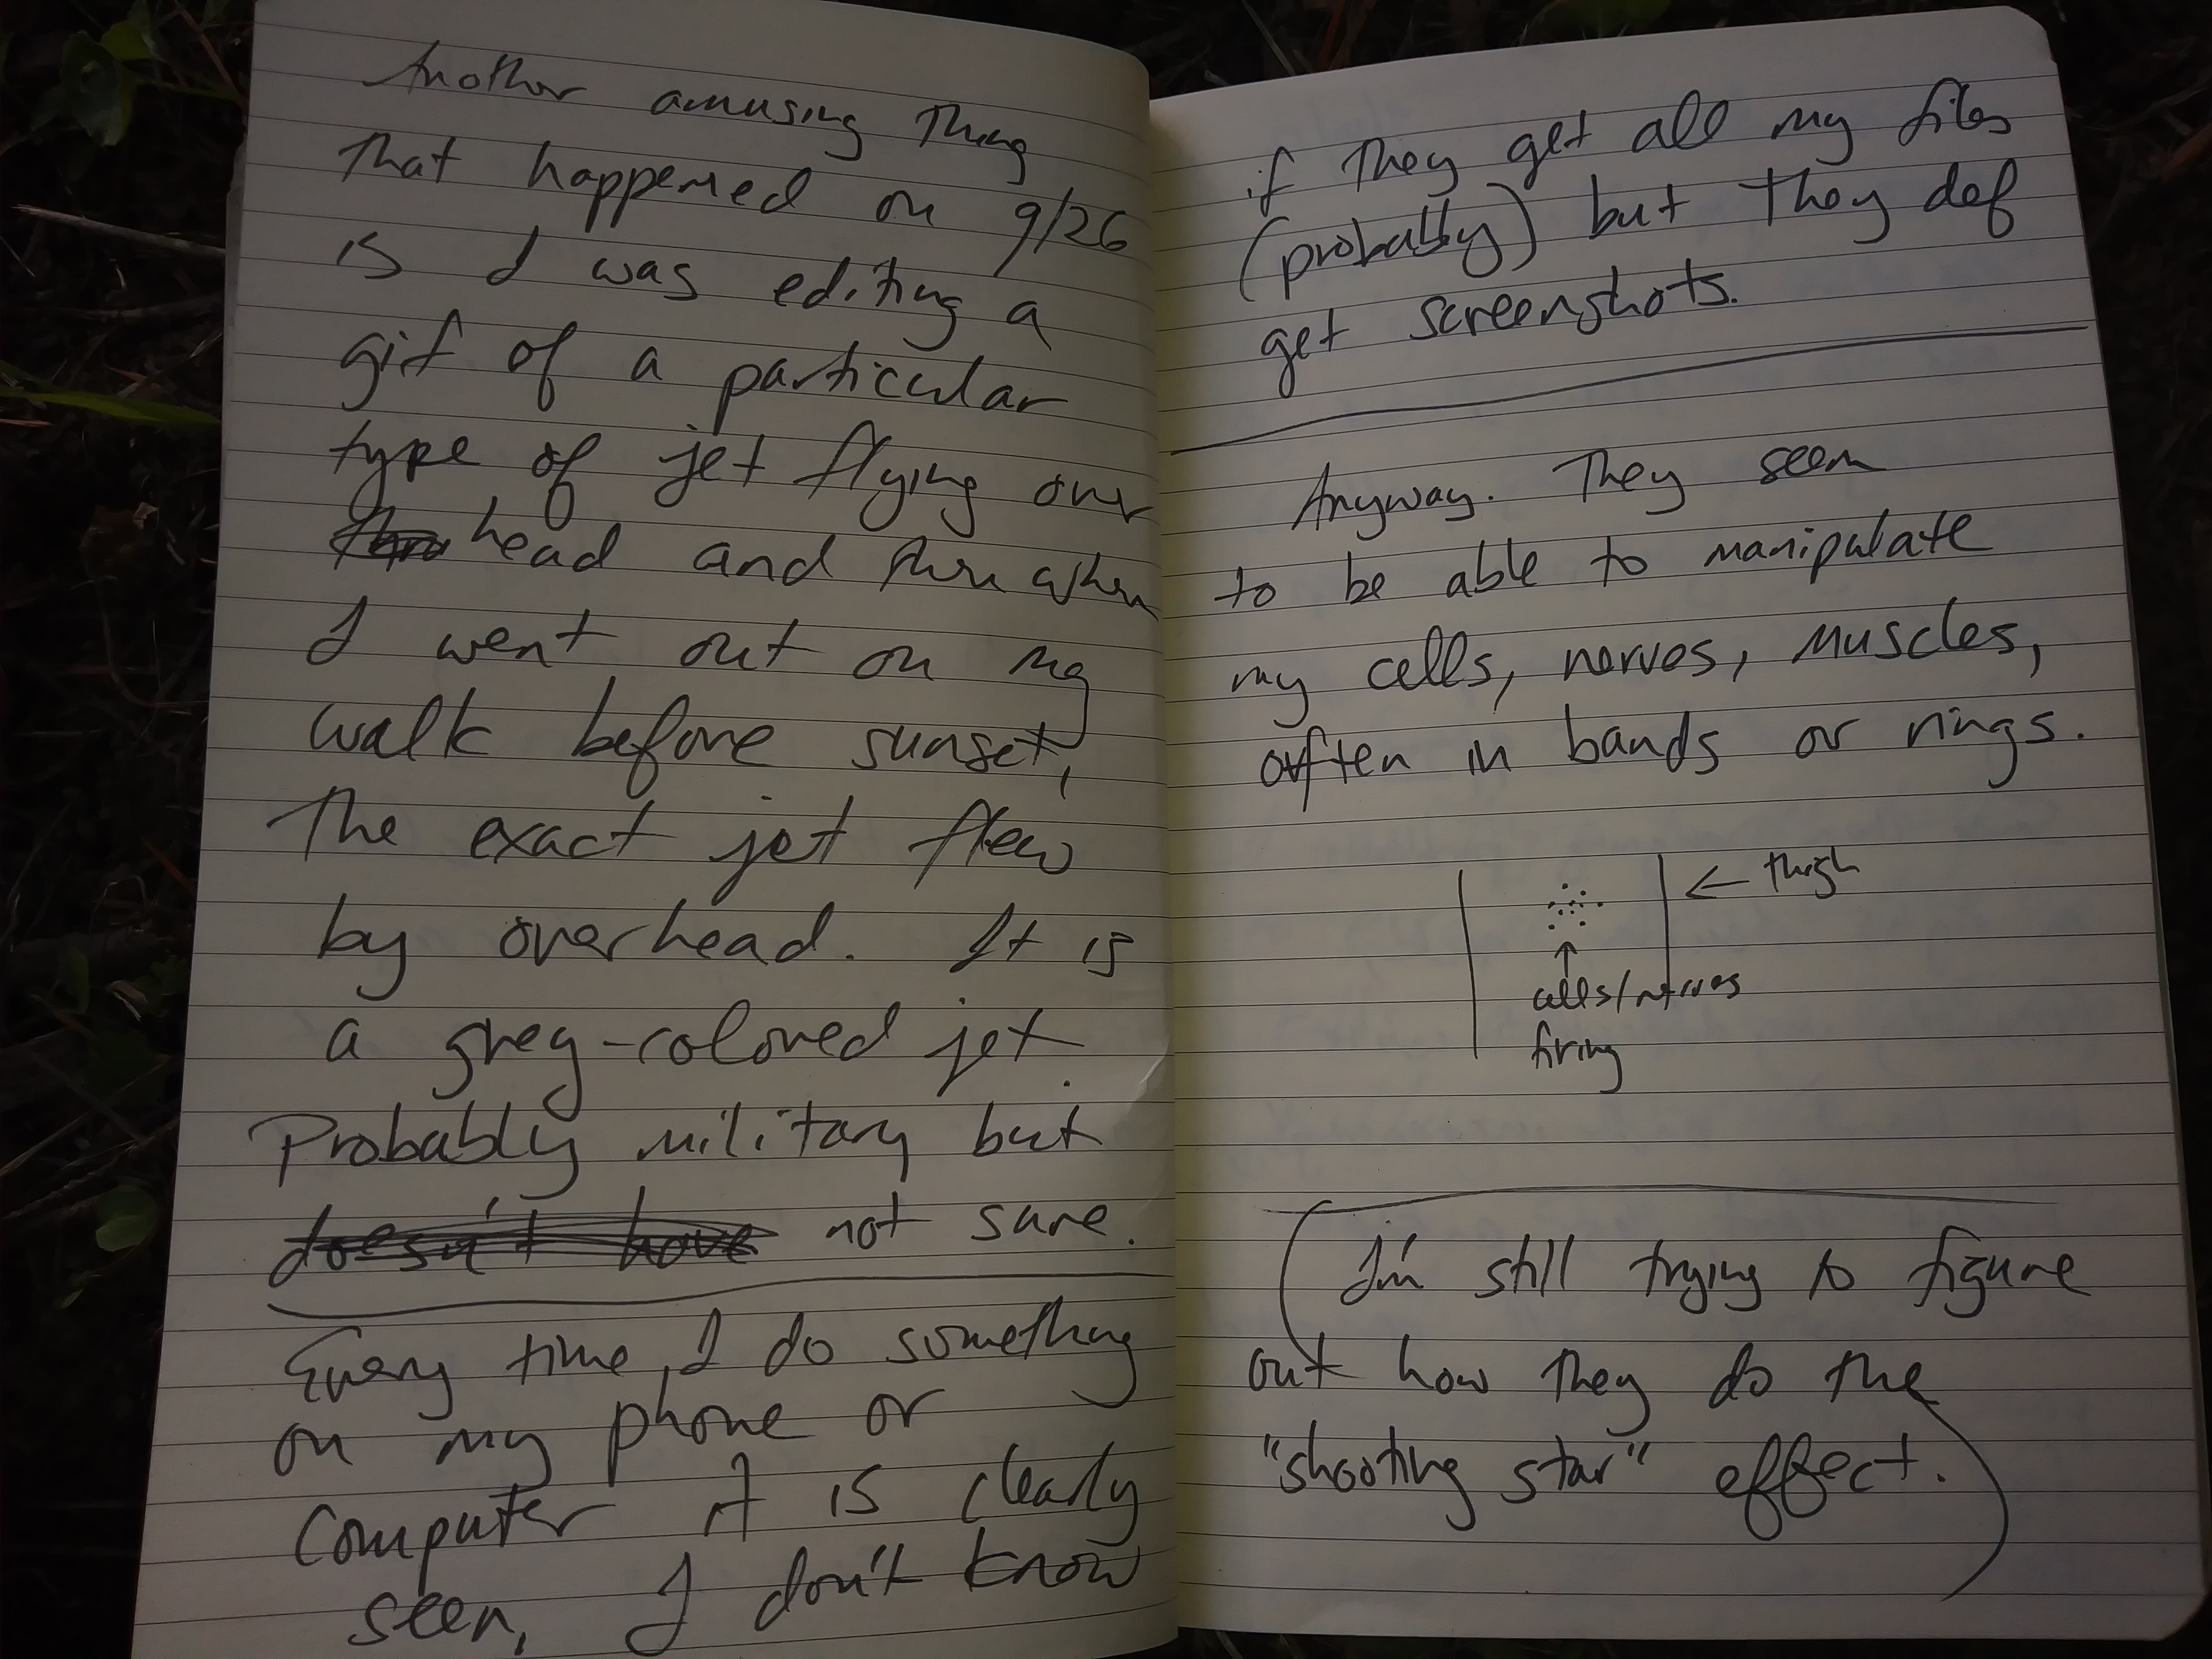 Another amusing thing
that happened on 9/26
is I was editing a
gif of a particular
type of jet flying over
head and then when
I went out on my
walk before sunset,
The exact jet flew
by overhead. It is
a grey-colored jet.
Probably military but
doesn't have not sure.
Every time I do something
on my phone or
computer it is clearly
seen, I don't know
if they get all my files
(probably) but they def
get screenshots.
Anyway. They seem
to be able to manipulate
my cells, nerves, muscles,
often in bands or rings.
← thigh
↑
cells/nerves
firing
(I'm still trying to figure
out how they do the
"shooting star" effect.)